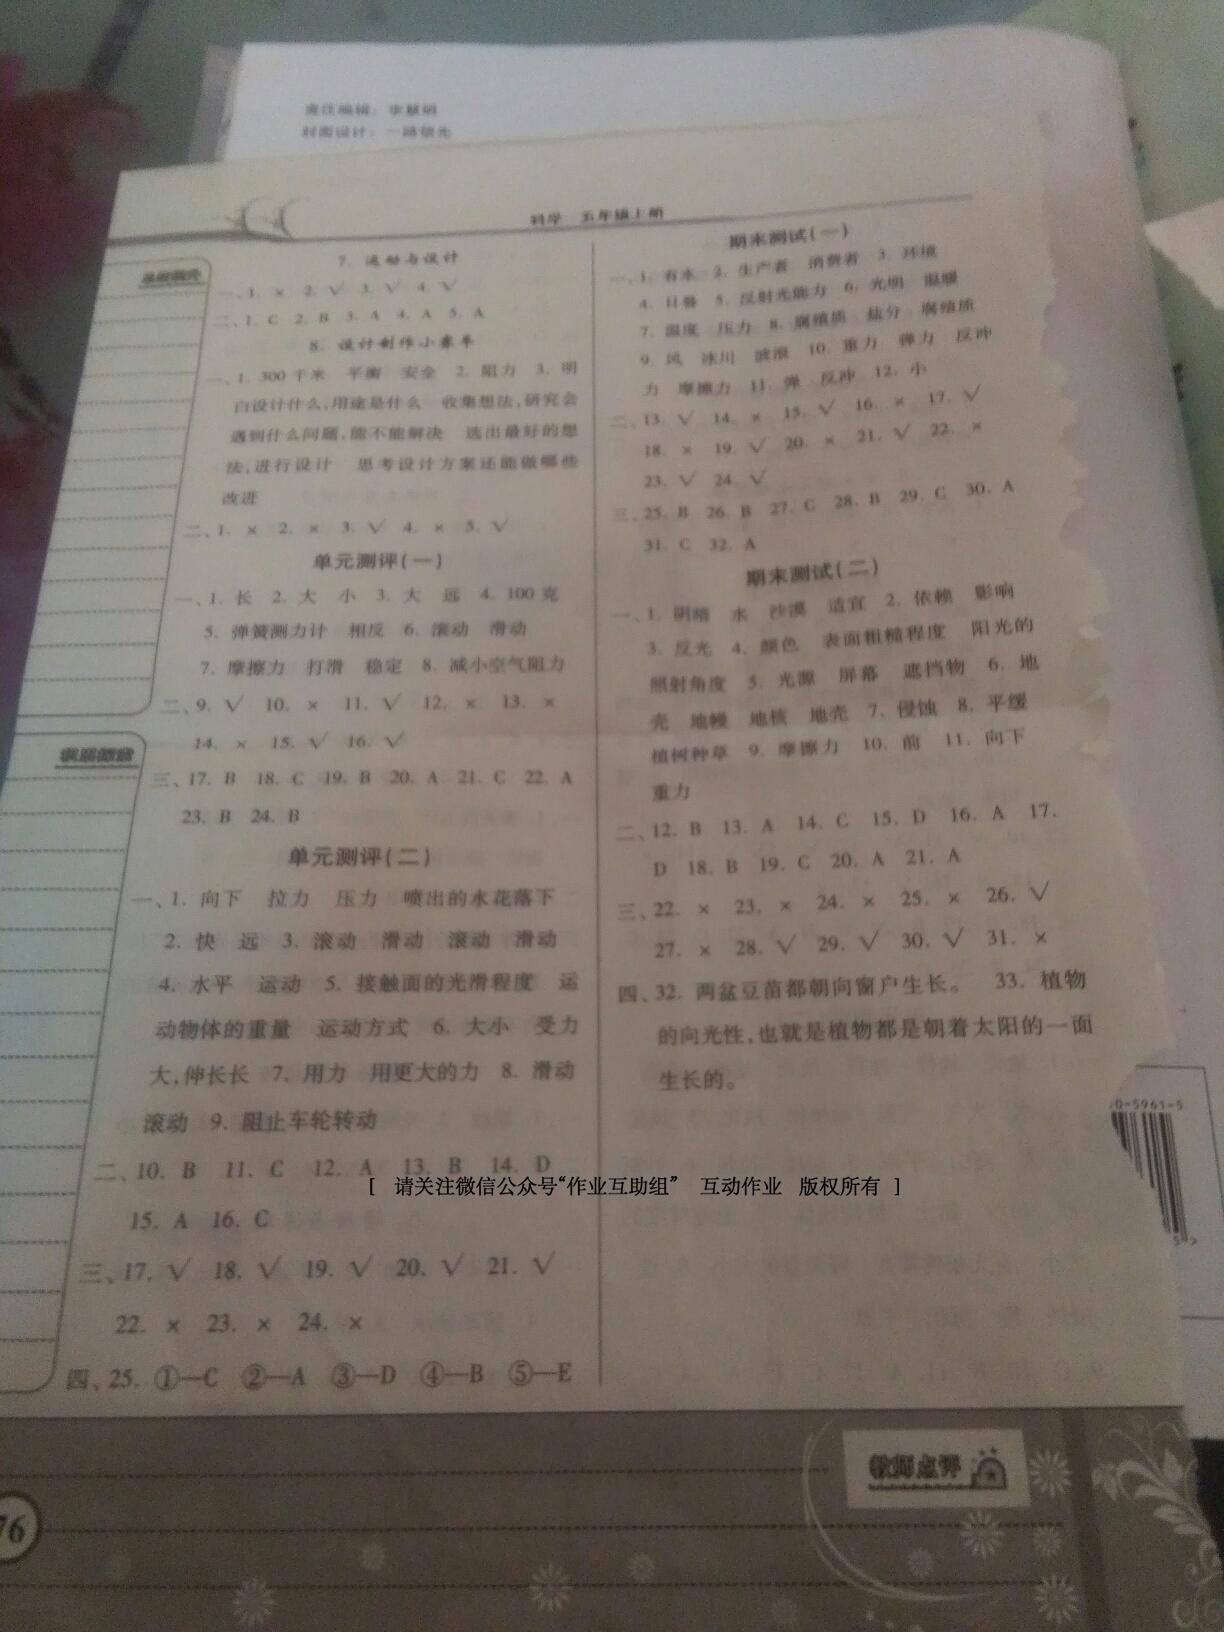 责任编辑：李慧娟
封面设计：一路领光
科学 五年级上册
7. 运动与设计
一、1. × 2. √ 3. √ 4. √
二、1. C 2. B 3. A 4. A 5. A
8. 设计制作小赛车
一、1. 500千米 平衡 安全 2. 阻力 3. 明
白设计什么,用途是什么 收集想法,研究会
遇到什么问题,能不能解决 选出最好的想
法,进行设计 思考设计方案还能做哪些
改进
二、1. × 2. × 3. √ 4. × 5. √
单元测评(一)
一、1. 长 2. 大 小 3. 大 远 4. 100克
5. 弹簧测力计 相反 6. 滚动 滑动
7. 摩擦力 打滑 稳定 8. 减小空气阻力
二、9. √ 10. × 11. √ 12. × 13. ×
14. × 15. √ 16. √
三、17. B 18. C 19. B 20. A 21. C 22. A
23. B 24. B
单元测评(二)
一、1. 向下 拉力 压力 喷出的水花落下
2. 快 远 3. 滚动 滑动 滚动 滑动
4. 水平 运动 5. 接触面的光滑程度 运
动物体的重量 运动方式 6. 大小 受力
大,伸长长 7. 用力 用更大的力 8. 滑动
滚动 9. 阻止车轮转动
二、10. B 11. C 12. A 13. B 14. D
15. A 16. C
三、17. √ 18. √ 19. √ 20. √ 21. √
22. × 23. × 24. ×
四、25. ①—C ②—A ③—D ④—B ⑤—E
期末测试(一)
一、1. 有水 2. 生产者 消费者 3. 环境
4. 日晷 5. 反射光能力 6. 光明 温暖
7. 温度 压力 8. 腐殖质 盐分 腐殖质
9. 风 冰川 波浪 10. 重力 弹力 反冲
力 摩擦力 11. 弹 反冲 12. 小
二、13. √ 14. × 15. √ 16. × 17. √
18. × 19. √ 20. × 21. √ 22. ×
23. √ 24. √
三、25. B 26. B 27. C 28. B 29. C 30. A
31. C 32. A
期末测试(二)
一、1. 阴暗 水 沙漠 适宜 2. 依赖 影响
3. 反光 4. 颜色 表面粗糙程度 阳光的
照射角度 5. 光源 屏幕 遮挡物 6. 地
壳 地幔 地核 地壳 7. 侵蚀 8. 平缓
植树种草 9. 摩擦力 10. 前 11. 向下
重力
二、12. B 13. A 14. C 15. D 16. A 17.
D 18. B 19. C 20. A 21. A
三、22. × 23. × 24. × 25. × 26. √
27. × 28. √ 29. √ 30. √ 31. ×
四、32. 两盆豆苗都朝向窗户生长。 33. 植物
的向光性,也就是植物都是朝着太阳的一面
生长的。
0-5961-5
[ 请关注微信公众号“作业互助组” 互动作业 版权所有 ]
教师点评
76